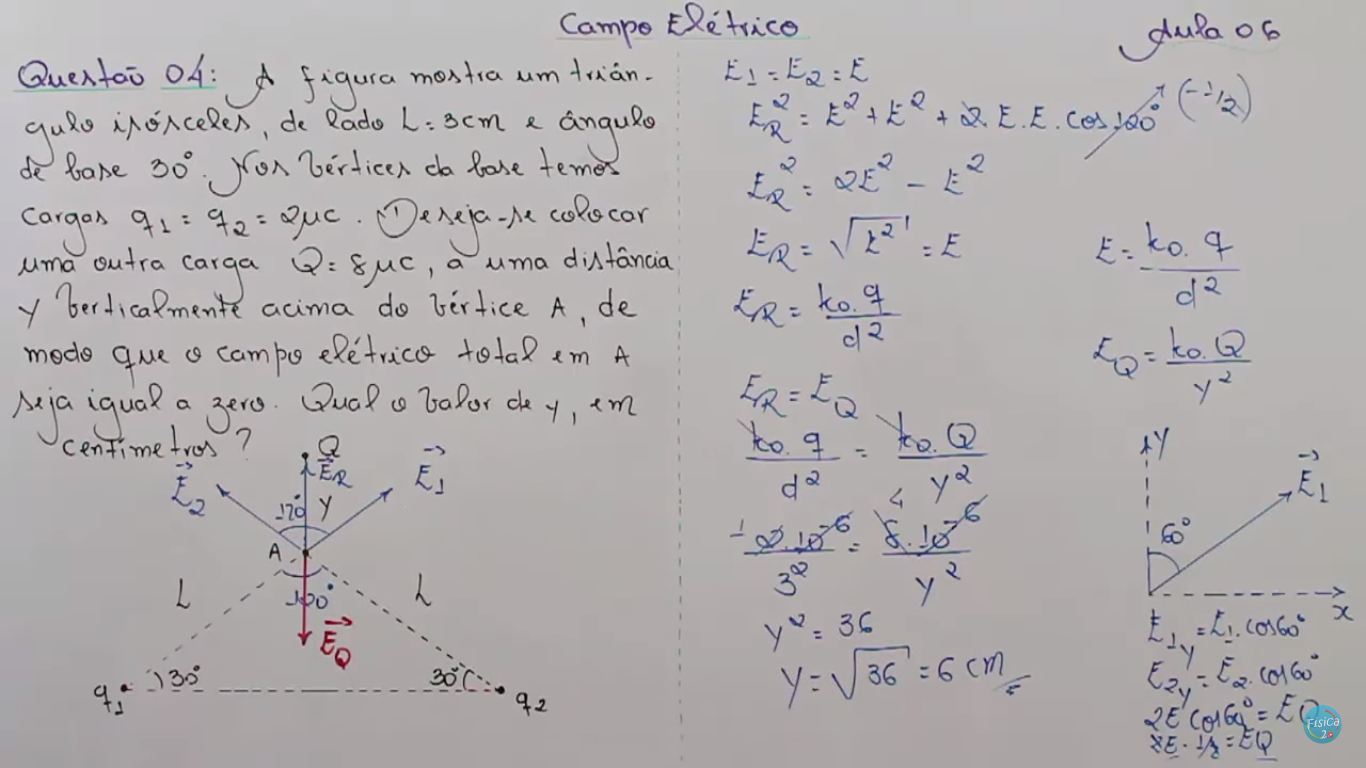 Campo Elétrico
Aula 06
Questão 04: A figura mostra um triân-
gulo isósceles, de lado L = 3 cm e ângulo
de base 30°. Nos vértices da base temos
cargas q₁ = q₂ = 2μC. Deseja-se colocar
uma outra carga Q = 8μC, a uma distância
y verticalmente acima do vértice A, de
modo que o campo elétrico total em A
seja igual a zero. Qual o valor de y, em
centímetros?
Q
E⃗_R
E⃗₂
E⃗₁
120°
y
A
L
120°
L
E⃗_Q
30°
30°
q₁
q₂
E₁ = E₂ = E
E_R² = E² + E² + 2.E.E.cos 120° (-1/2)
E_R² = 2E² - E²
E_R = √E² = E
E_R = ko.q/d²
E_R = E_Q
ko.q/d² = ko.Q/y²
1 4
2.10⁻⁶/3² = 8.10⁻⁶/y²
y² = 36
y = √36 = 6 cm
E = ko.q/d²
E_Q = ko.Q/y²
y
E⃗₁
60°
x
E₁y = E₁.cos60°
E₂y = E₂.cos60°
2E cos60° = EQ
2E.1/2 = EQ
Física
2.